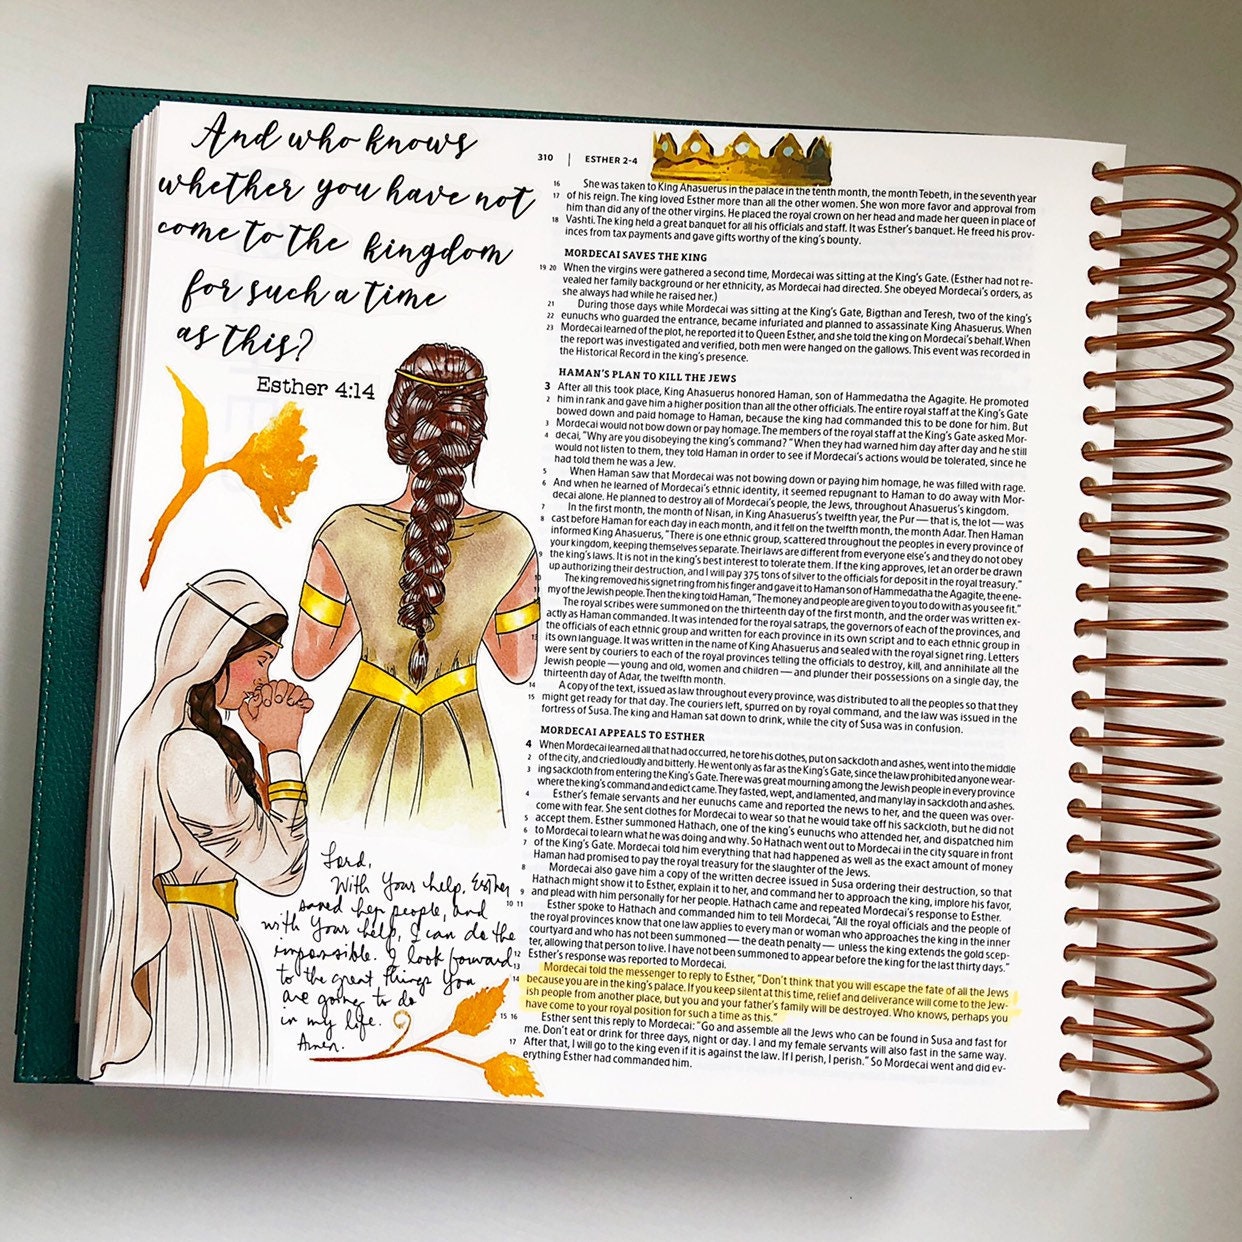 And who knows
whether you have not
come to the kingdom
for such a time
as this?
Esther 4:14
Lord,
With Your help, Esther
saved her people, and
with Your help, I can do the
impossible. I look forward
to the great things You
are going to do
in my life.
Amen.
310 | ESTHER 2-4
16 She was taken to King Ahasuerus in the palace in the tenth month, the month Tebeth, in the seventh year
17 of his reign. The king loved Esther more than all the other women. She won more favor and approval from
him than did any of the other virgins. He placed the royal crown on her head and made her queen in place of
18 Vashti. The king held a great banquet for all his officials and staff. It was Esther's banquet. He freed his prov-
inces from tax payments and gave gifts worthy of the king's bounty.
MORDECAI SAVES THE KING
19 20 When the virgins were gathered a second time, Mordecai was sitting at the King's Gate. (Esther had not re-
vealed her family background or her ethnicity, as Mordecai had directed. She obeyed Mordecai's orders, as
she always had while he raised her.)
21 During those days while Mordecai was sitting at the King's Gate, Bigthan and Teresh, two of the king's
22 eunuchs who guarded the entrance, became infuriated and planned to assassinate King Ahasuerus. When
23 Mordecai learned of the plot, he reported it to Queen Esther, and she told the king on Mordecai's behalf. When
the report was investigated and verified, both men were hanged on the gallows. This event was recorded in
the Historical Record in the king's presence.
HAMAN'S PLAN TO KILL THE JEWS
3 After all this took place, King Ahasuerus honored Haman, son of Hammedatha the Agagite. He promoted
2 him in rank and gave him a higher position than all the other officials. The entire royal staff at the King's Gate
bowed down and paid homage to Haman, because the king had commanded this to be done for him. But
3 Mordecai would not bow down or pay homage. The members of the royal staff at the King's Gate asked Mor-
4 decai, "Why are you disobeying the king's command?" When they had warned him day after day and he still
would not listen to them, they told Haman in order to see if Mordecai's actions would be tolerated, since he
had told them he was a Jew.
5 When Haman saw that Mordecai was not bowing down or paying him homage, he was filled with rage.
6 And when he learned of Mordecai's ethnic identity, it seemed repugnant to Haman to do away with Mor-
decai alone. He planned to destroy all of Mordecai's people, the Jews, throughout Ahasuerus's kingdom.
7 In the first month, the month of Nisan, in King Ahasuerus's twelfth year, the Pur — that is, the lot — was
8 cast before Haman for each day in each month, and it fell on the twelfth month, the month Adar. Then Haman
informed King Ahasuerus, "There is one ethnic group, scattered throughout the peoples in every province of
your kingdom, keeping themselves separate. Their laws are different from everyone else's and they do not obey
9 the king's laws. It is not in the king's best interest to tolerate them. If the king approves, let an order be drawn
up authorizing their destruction, and I will pay 375 tons of silver to the officials for deposit in the royal treasury."
10 The king removed his signet ring from his finger and gave it to Haman son of Hammedatha the Agagite, the ene-
my of the Jewish people. Then the king told Haman, "The money and people are given to you to do with as you see fit."
The royal scribes were summoned on the thirteenth day of the first month, and the order was written ex-
actly as Haman commanded. It was intended for the royal satraps, the governors of each of the provinces, and
the officials of each ethnic group and written for each province in its own script and to each ethnic group in
13 its own language. It was written in the name of King Ahasuerus and sealed with the royal signet ring. Letters
were sent by couriers to each of the royal provinces telling the officials to destroy, kill, and annihilate all the
Jewish people — young and old, women and children — and plunder their possessions on a single day, the
thirteenth day of Adar, the twelfth month.
14 A copy of the text, issued as law throughout every province, was distributed to all the peoples so that they
15 might get ready for that day. The couriers left, spurred on by royal command, and the law was issued in the
fortress of Susa. The king and Haman sat down to drink, while the city of Susa was in confusion.
MORDECAI APPEALS TO ESTHER
4 When Mordecai learned all that had occurred, he tore his clothes, put on sackcloth and ashes, went into the middle
2 of the city, and cried loudly and bitterly. He went only as far as the King's Gate, since the law prohibited anyone wear-
3 ing sackcloth from entering the King's Gate. There was great mourning among the Jewish people in every province
where the king's command and edict came. They fasted, wept, and lamented, and many lay in sackcloth and ashes.
4 Esther's female servants and her eunuchs came and reported the news to her, and the queen was over-
come with fear. She sent clothes for Mordecai to wear so that he would take off his sackcloth, but he did not
5 accept them. Esther summoned Hathach, one of the king's eunuchs who attended her, and dispatched him
6 to Mordecai to learn what he was doing and why. So Hathach went out to Mordecai in the city square in front
7 of the King's Gate. Mordecai told him everything that had happened as well as the exact amount of money
Haman had promised to pay the royal treasury for the slaughter of the Jews.
8 Mordecai also gave him a copy of the written decree issued in Susa ordering their destruction, so that
Hathach might show it to Esther, explain it to her, and command her to approach the king, implore his favor,
9 and plead with him personally for her people. Hathach came and repeated Mordecai's response to Esther.
10 11 Esther spoke to Hathach and commanded him to tell Mordecai, "All the royal officials and the people of
the royal provinces know that one law applies to every man or woman who approaches the king in the inner
courtyard and who has not been summoned — the death penalty — unless the king extends the gold scep-
ter, allowing that person to live. I have not been summoned to appear before the king for the last thirty days."
12 Esther's response was reported to Mordecai.
13 Mordecai told the messenger to reply to Esther, "Don't think that you will escape the fate of all the Jews
14 because you are in the king's palace. If you keep silent at this time, relief and deliverance will come to the Jew-
ish people from another place, but you and your father's family will be destroyed. Who knows, perhaps you
have come to your royal position for such a time as this."
15 16 Esther sent this reply to Mordecai: "Go and assemble all the Jews who can be found in Susa and fast for
me. Don't eat or drink for three days, night or day. I and my female servants will also fast in the same way.
17 After that, I will go to the king even if it is against the law. If I perish, I perish." So Mordecai went and did ev-
erything Esther had commanded him.